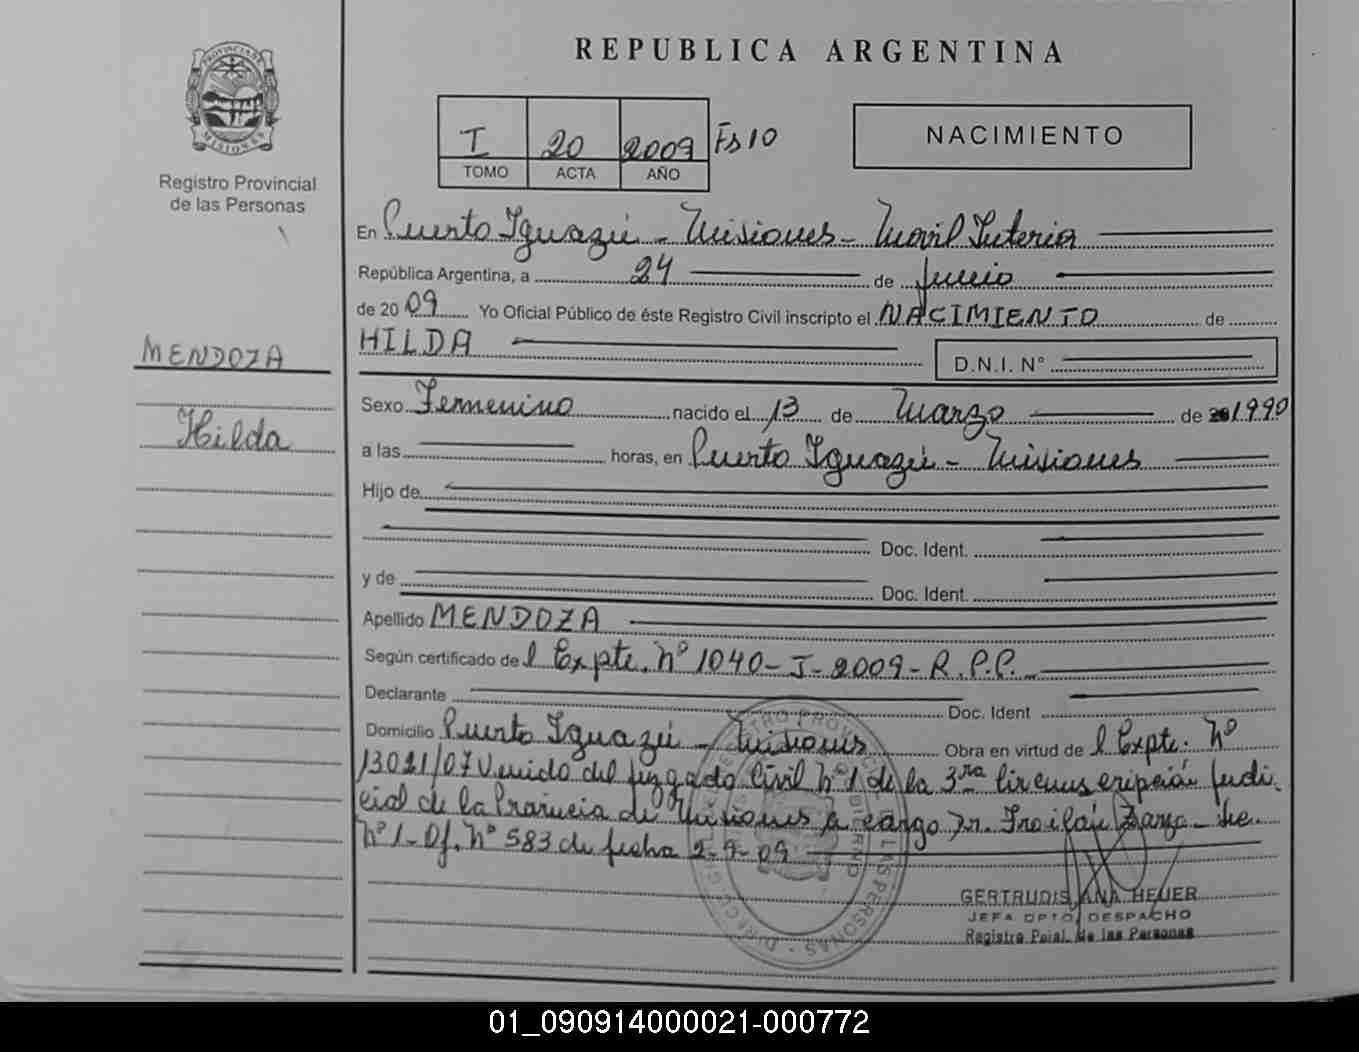 REPUBLICA ARGENTINA
PROVINCIA DE
MISIONES
Registro Provincial
de las Personas
I 20 2009 Fs 10
TOMO ACTA AÑO
NACIMIENTO
En Puerto Iguazú - Misiones - Movil Interior
República Argentina, a 24 de Junio
de 20 09 Yo Oficial Público de éste Registro Civil inscripto el NACIMIENTO de
HILDA
D.N.I. N°
MENDOZA
Hilda
Sexo Femenino nacido el 13 de Marzo de 1990
a las horas, en Puerto Iguazú - Misiones
Hijo de
Doc. Ident.
y de Doc. Ident.
Apellido MENDOZA
Según certificado de l Expte. Nº 1040-I-2009-R.P.P.
Declarante Doc. Ident
Domicilio Puerto Iguazú - Misiones Obra en virtud de l Expte. Nº
13021/07 Venido del Juzgado Civil Nº 1 de la 3ra Circunscripción Judi-
cial de la Provincia de Misiones a cargo Dr. Froilán Zarza - Sec.
Nº 1 - Of. Nº 583 de fecha
GERTRUDIS ANA HEUER
JEFA DPTO. DESPACHO
Registro Pcial. de las Personas
01_090914000021-000772